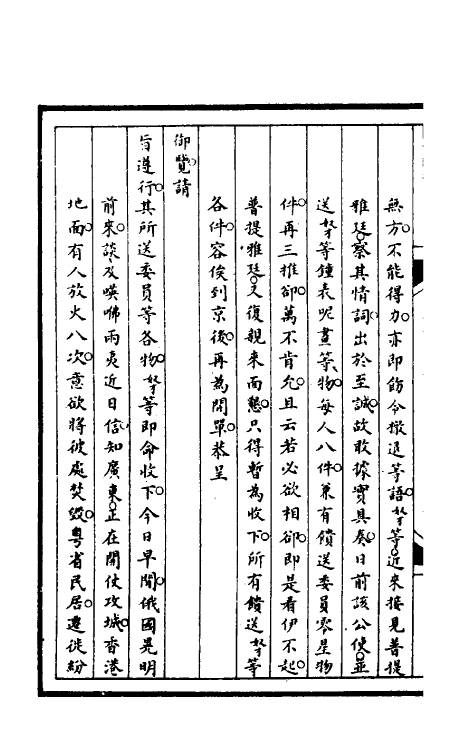 無方不能得力亦即飭令撤退等語奴才等近來接見普提
雅廷察其情詞出於至誠故敢據實具奏日前該公使並
送奴才等鐘表呢畫等物每人八件兼有饋送委員零星物
件再三推卻萬不肯允且云若必欲相卻即是看伊不起
普提雅廷又復親來面懇只得暫為收下所有饋送奴才等
各件容俟到京後再為開單恭呈
御覽請
旨遵行其所送委員等各物奴才等即命收下今日早間俄國晃明
前來談及嘆咈兩夷近日信知廣東正在開仗攻城香港
地面有人放火八次意欲將彼處焚毀粵省民居遷徙紛